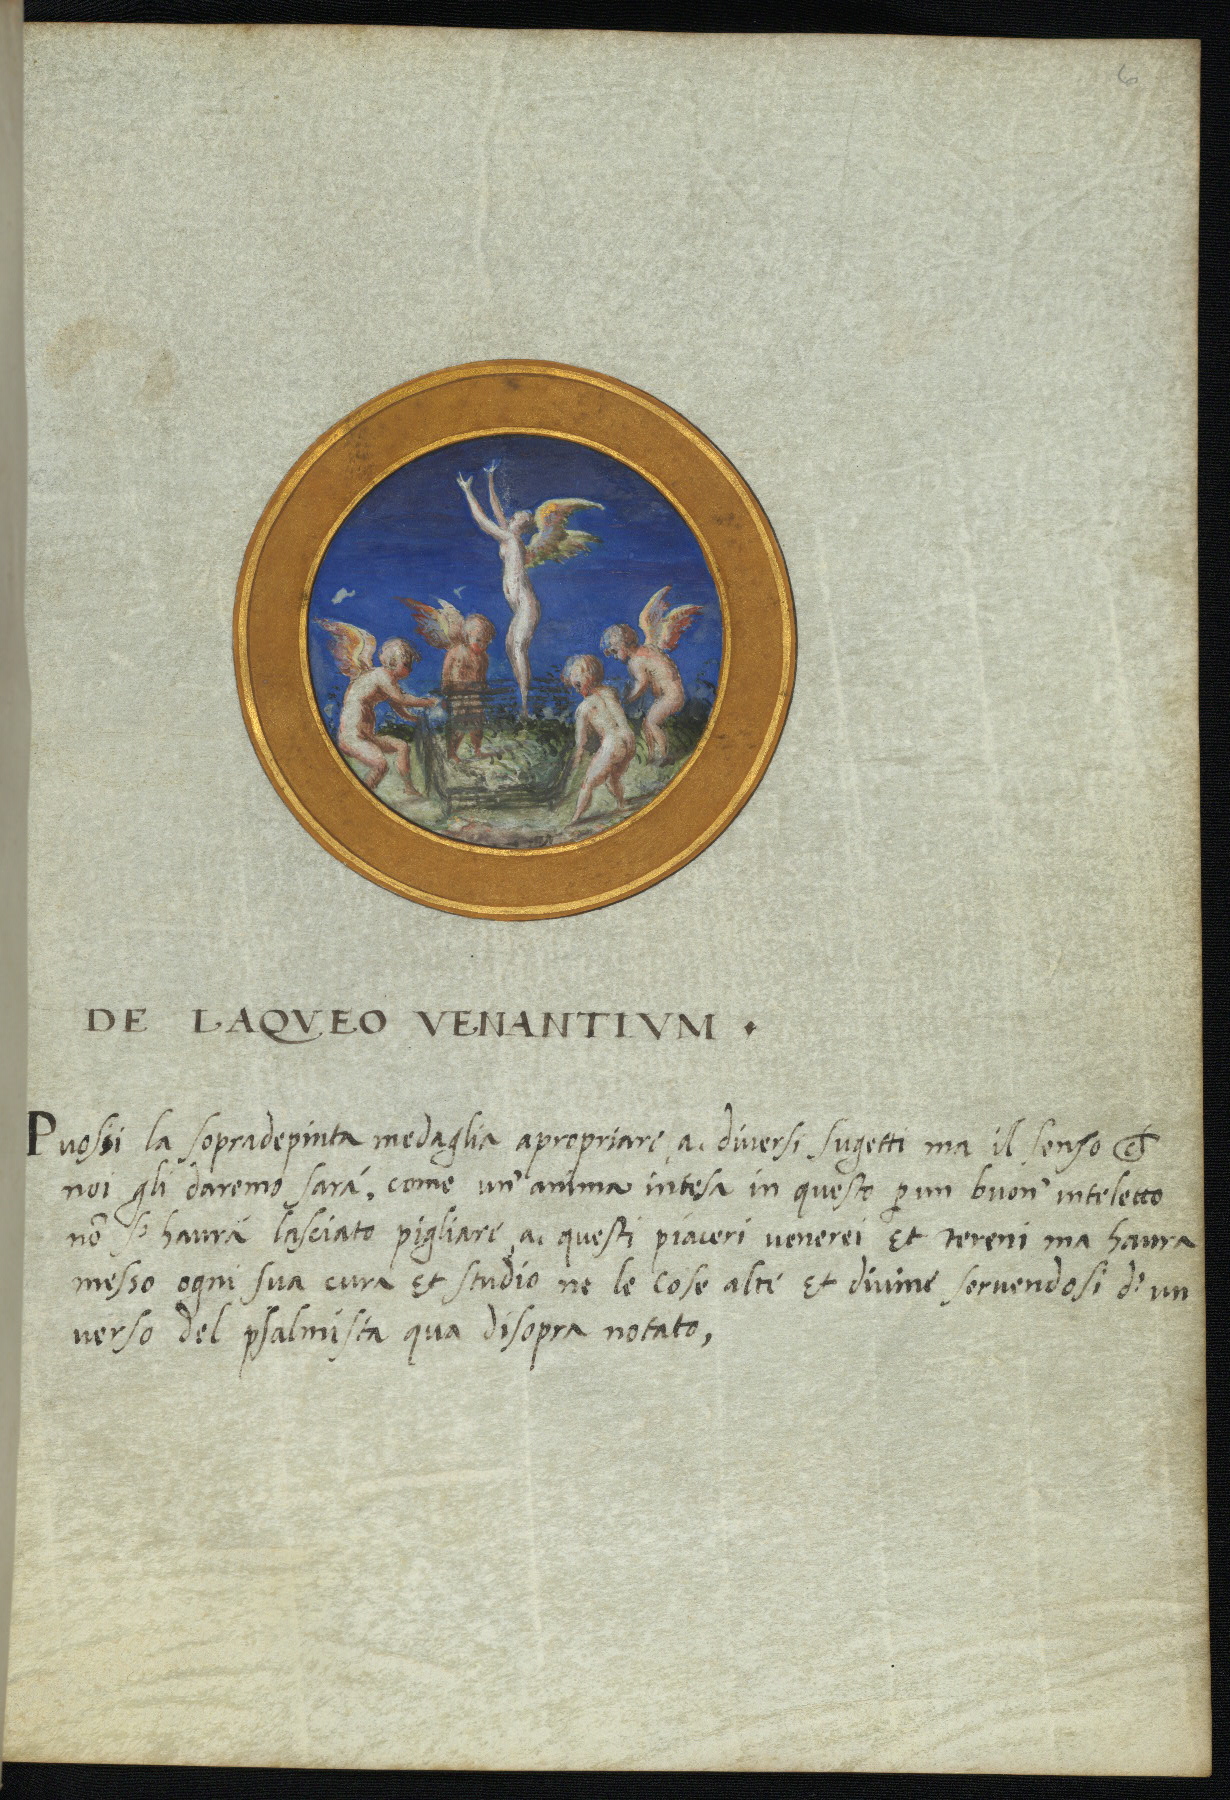 6
DE LAQVEO VENANTIVM ·
Puossi la sopradepinta medaglia apropriare a. diversi sugetti ma il senso
noi gli daremo sará, come un' anima intesa in questo p un buon' inteletto
nō si haurá lasciato pigliare a. questi piaceri venerei et tereni ma haura
messo ogni sua cura et studio ne le cose alte et divine servendosi di un
verso del psalmista qua disopra notato,